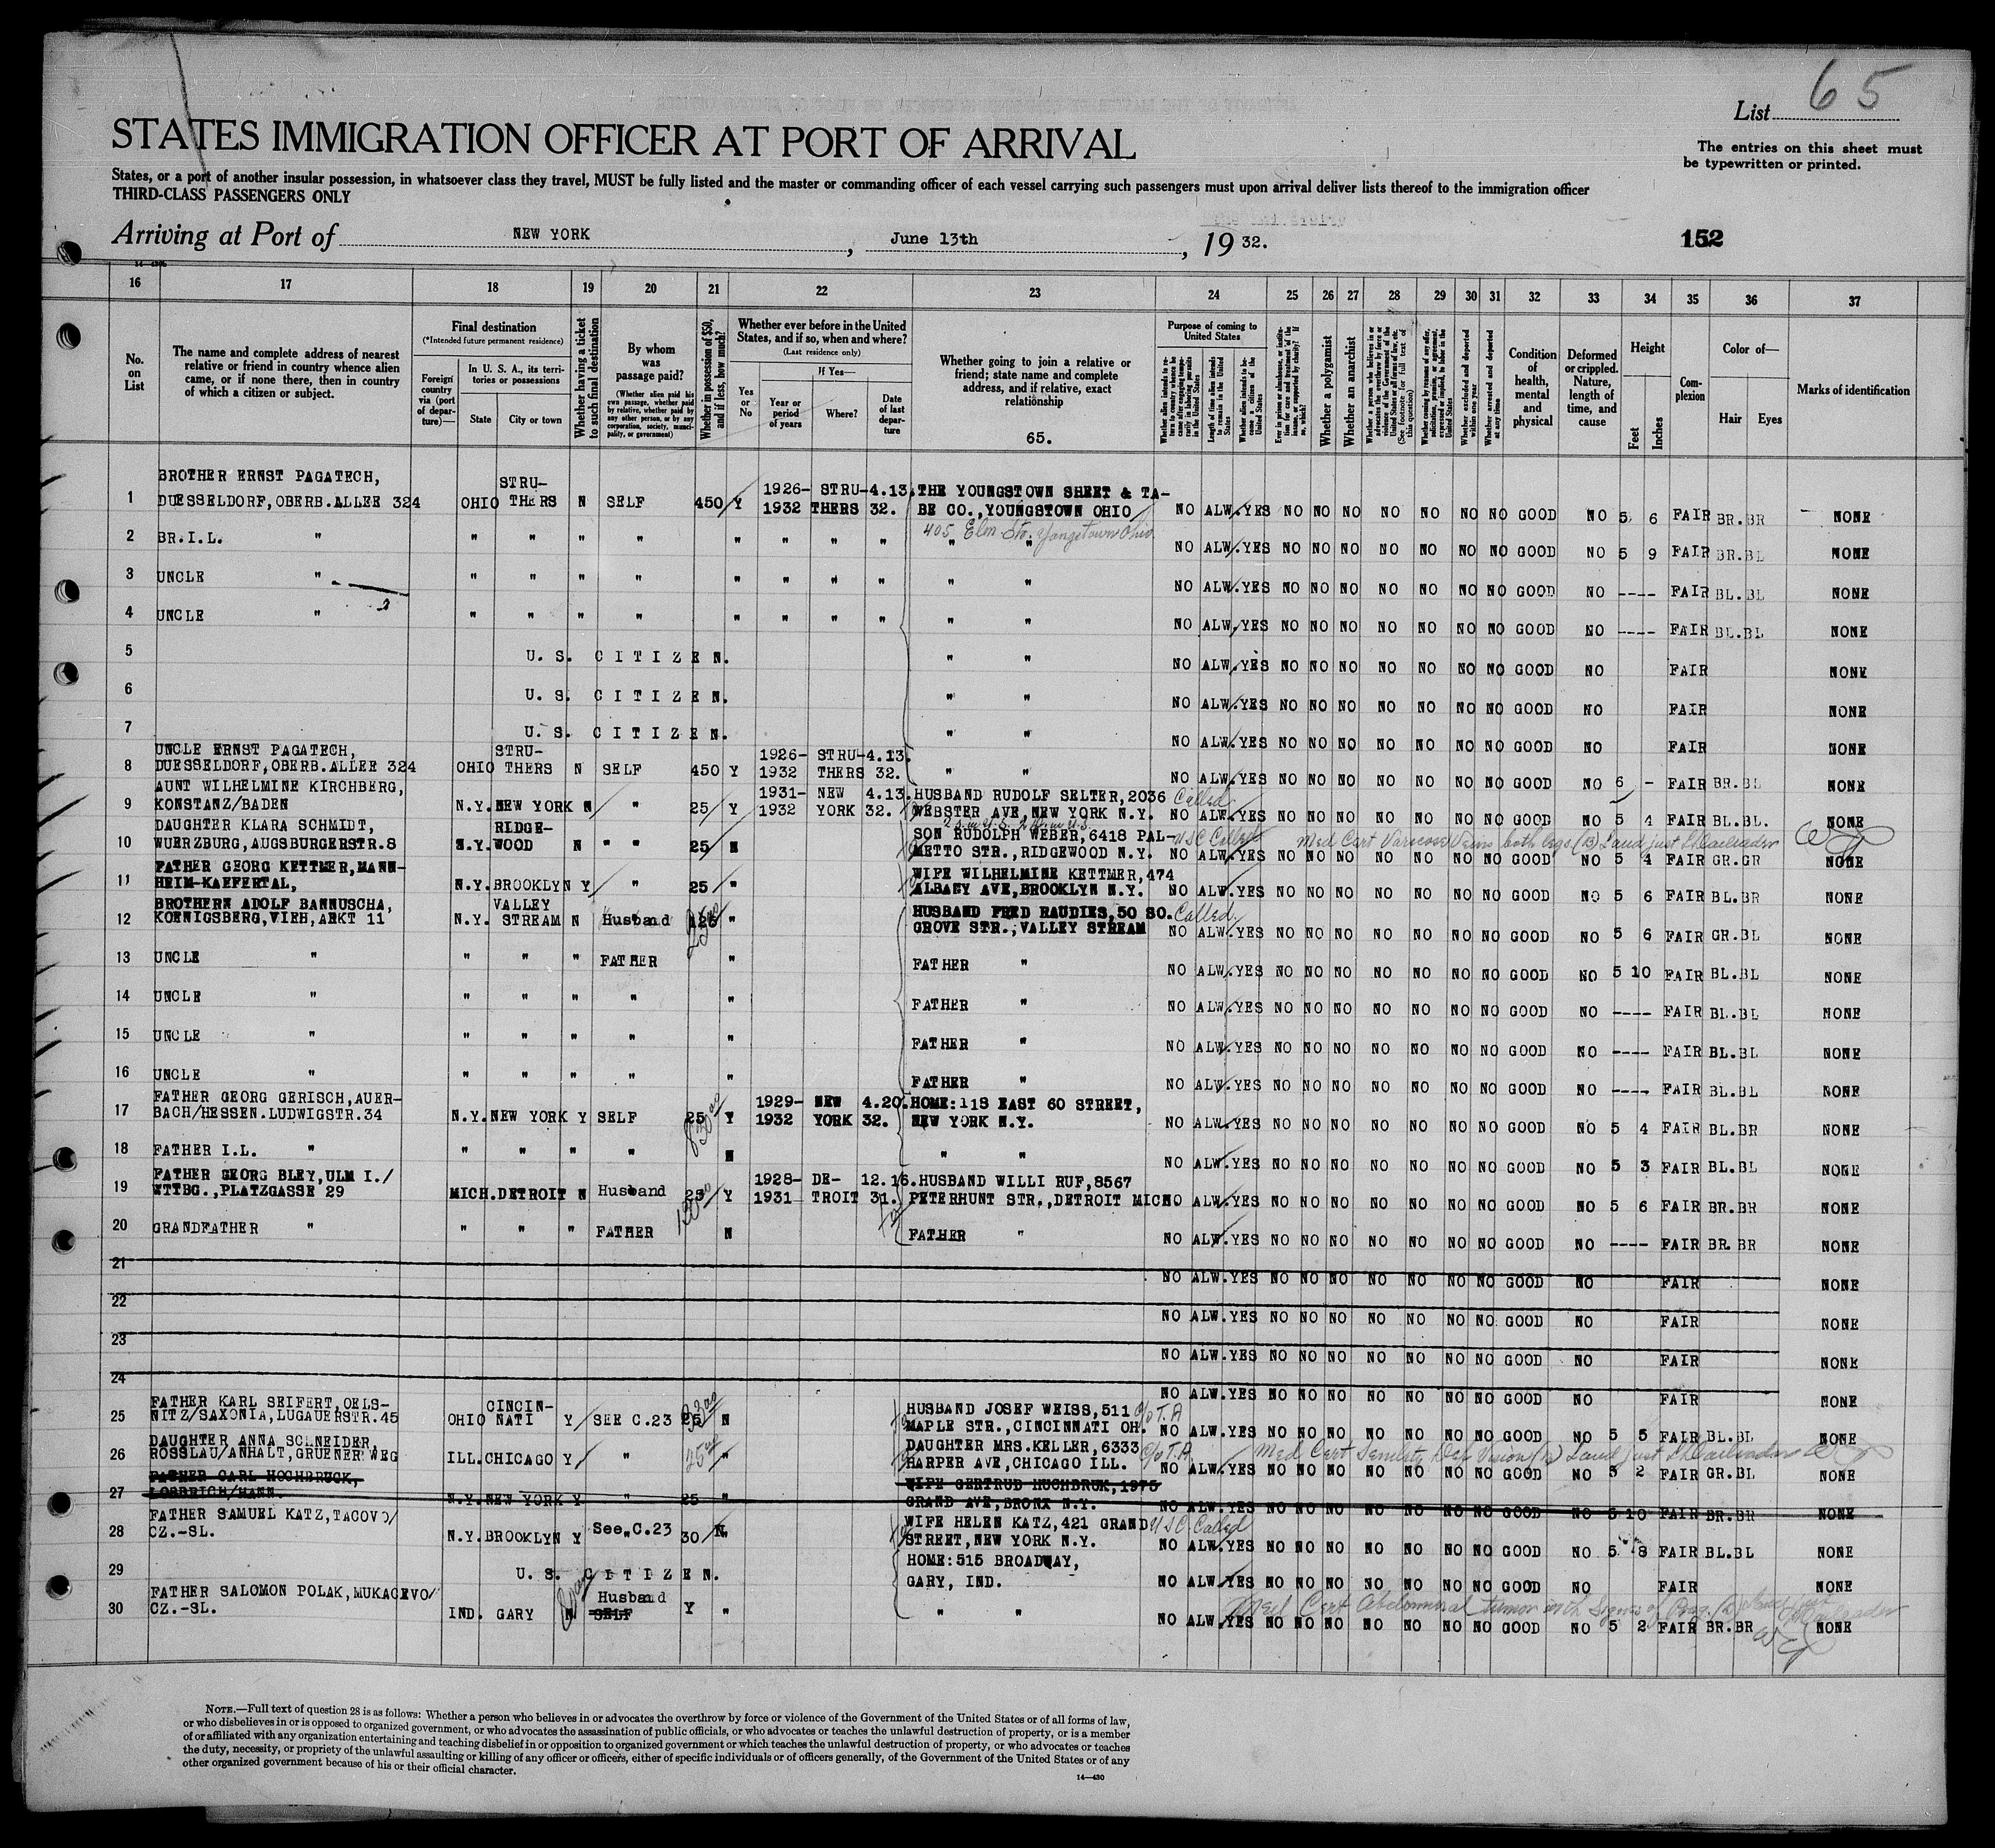 65
List
STATES IMMIGRATION OFFICER AT PORT OF ARRIVAL
The entries on this sheet must
be typewritten or printed.
States, or a port of another insular possession, in whatsoever class they travel, MUST be fully listed and the master or commanding officer of each vessel carrying such passengers must upon arrival deliver lists thereof to the immigration officer
THIRD-CLASS PASSENGERS ONLY
Arriving at Port of NEW YORK, June 13th, 1932.
152
16 17 18 19 20 21 22 23 24 25 26 27 28 29 30 31 32 33 34 35 36 37
No. on List
The name and complete address of nearest relative or friend in country whence alien came, or if none there, then in country of which a citizen or subject.
Final destination
(*Intended future permanent residence)
Foreign country via (port of departure)—
In U. S. A., its territories or possessions
State City or town
Whether having a ticket to such final destination
By whom was passage paid?
(Whether alien paid his own passage, whether paid by relative, whether paid by any other person, or by any corporation, society, municipality, or government)
Whether in possession of $50, and if less, how much?
Whether ever before in the United States, and if so, when and where?
(Last residence only)
Yes or No
If Yes—
Year or period of years
Where?
Date of last departure
Whether going to join a relative or friend; state name and complete address, and if relative, exact relationship
65.
Purpose of coming to United States
Length of time alien intends to remain in the United States
Whether alien intends to become a citizen of the United States
Whether a polygamist
Whether an anarchist
Whether excluded and deported within one year
Whether arrested and deported at any time
Condition of health, mental and physical
Deformed or crippled. Nature, length of time, and cause
Height
Feet Inches
Complexion
Color of—
Hair Eyes
Marks of identification
BROTHER ERNST PAGATECH,
1 DUESSELDORF,OBERB.ALLEE 324 OHIO STRU-THERS N SELF 450 Y 1926-1932 STRU-THERS 4.13.32. THE YOUNGSTOWN SHEET & TA-
BE CO.,YOUNGSTOWN OHIO NO ALW. YES NO NO NO NO NO NO NO GOOD NO 5 6 FAIR BR.BR NONE
405 Elm Yongstown Ohio
2 BR.I.L. " " " " " " " " " " " NO ALW. YES NO NO NO NO NO NO NO GOOD NO 5 9 FAIR BR.BL NONE
3 UNCLE " " " " " " " " " " " NO ALW. YES NO NO NO NO NO NO NO GOOD NO ---- FAIR BL.BL NONE
4 UNCLE " " " " " " " " " " " NO ALW. YES NO NO NO NO NO NO NO GOOD NO ---- FAIR BL.BL NONE
5 U. S. C I T I Z E N. " " NO ALW. YES NO NO NO NO NO NO NO GOOD NO FAIR NONE
6 U. S. C I T I Z E N. " " NO ALW. YES NO NO NO NO NO NO NO GOOD NO FAIR NONE
7 U. S. C I T I Z E N. " " NO ALW. YES NO NO NO NO NO NO NO GOOD NO FAIR NONE
UNCLE ERNST PAGATECH,
8 DUESSELDORF,OBERB.ALLEE 324 OHIO STRU-THERS N SELF 450 Y 1926-1932 STRU-THERS 4.13.32. " " NO ALW. YES NO NO NO NO NO NO NO GOOD NO 6 - FAIR BR.BL NONE
AUNT WILHELMINE KIRCHBERG,
9 KONSTANZ/BADEN N.Y. NEW YORK N " 25 Y 1931-1932 NEW YORK 4.13.32. HUSBAND RUDOLF SELTER,2036 Called
WEBSTER AVE,NEW YORK N.Y. NO ALW. YES NO NO NO NO NO NO NO GOOD NO 5 4 FAIR BL.BL. NONE
DAUGHTER KLARA SCHMIDT,
10 WUERZBURG,AUGSBURGERSTR.8 N.Y. RIDGE-WOOD N " " 25 N SON RUDOLPH WEBER,6418 PAL-
METTO STR.,RIDGEWOOD N.Y. USC Called Med Cert Varicose Veins both legs (B) NO ALW. YES NO NO NO NO NO NO NO GOOD NO 5 4 FAIR GR.GR NONE
FATHER GEORG KETTMER,MANN-
11 HEIM-KAEFERTAL, N.Y. BROOKLYN Y " 25 " WIFE WILHELMINE KETTMER,474
ALBANY AVE,BROOKLYN N.Y. NO ALW. YES NO NO NO NO NO NO NO GOOD NO 5 6 FAIR BL.BR NONE
BROTHERN ADOLF BANNUSCHA,
12 KOENIGSBERG,VIEH,ARKT 11 N.Y. VALLEY STREAM N Husband 125 " HUSBAND FRED RAUDIES,50 SO. Called
GROVE STR.,VALLEY STREAM NO ALW. YES NO NO NO NO NO NO NO GOOD NO 5 6 FAIR GR.BL NONE
13 UNCLE " " " " FATHER " FATHER " NO ALW. YES NO NO NO NO NO NO NO GOOD NO 5 10 FAIR BL.BL NONE
14 UNCLE " " " " " " FATHER " NO ALW. YES NO NO NO NO NO NO NO GOOD NO ---- FAIR BL.BL NONE
15 UNCLE " " " " " " FATHER " NO ALW. YES NO NO NO NO NO NO NO GOOD NO ---- FAIR BL.BL NONE
16 UNCLE " " " " " " FATHER " NO ALW. YES NO NO NO NO NO NO NO GOOD NO ---- FAIR BL.BL NONE
FATHER GEORG GERISCH,AUER-
17 BACH/HESSEN.LUDWIGSTR.34 N.Y. NEW YORK Y SELF 25 Y 1929-1932 NEW YORK 4.20.32. HOME:118 EAST 60 STREET,
NEW YORK N.Y. NO ALW. YES NO NO NO NO NO NO NO GOOD NO 5 4 FAIR BL.BR NONE
18 FATHER I.L. " " " " " N " " NO ALW. YES NO NO NO NO NO NO NO GOOD NO 5 3 FAIR BL.BL NONE
FATHER GEORG BLEY,ULM I./
19 WTTBG.,PLATZGASSE 29 MICH. DETROIT N Husband 25 Y 1928-1931 DE-TROIT 12.16.31. HUSBAND WILLI RUF,8567
PETERHUNT STR.,DETROIT MICH NO ALW. YES NO NO NO NO NO NO NO GOOD NO 5 6 FAIR BR.BR NONE
20 GRANDFATHER " " " " FATHER N FATHER " NO ALW. YES NO NO NO NO NO NO NO GOOD NO ---- FAIR BR.BR NONE
21 NO ALW. YES NO NO NO NO NO NO NO GOOD NO FAIR NONE
22 NO ALW. YES NO NO NO NO NO NO NO GOOD NO FAIR NONE
23 NO ALW. YES NO NO NO NO NO NO NO GOOD NO FAIR NONE
24 NO ALW. YES NO NO NO NO NO NO NO GOOD NO FAIR NONE
FATHER KARL SEIFERT,OELS-
25 NITZ/SAXONIA,LUGAUERSTR.45 OHIO CINCIN-NATI Y SEE C.23 25 N HUSBAND JOSEF WEISS,511
MAPLE STR.,CINCINNATI OH. c/o T.A NO ALW. YES NO NO NO NO NO NO NO GOOD NO 5 5 FAIR BL.BL NONE
DAUGHTER ANNA SCHNEIDER,
26 ROSSLAU/ANHALT,GRUENER WEG ILL. CHICAGO Y " 25 " DAUGHTER MRS.KELLER,6333
HARPER AVE,CHICAGO ILL. c/o T.A. Med Cert Senility Def Vision (B) NO ALW. YES NO NO NO NO NO NO NO GOOD NO 5 2 FAIR GR.BL NONE
FATHER CARL HOCHBRUCK,
27 LOBBRICH/HANN. N.Y. NEW YORK Y " 25 " WIFE GERTRUD HUCHBRUK,1975
GRAND AVE,BRONX N.Y. NO ALW. YES NO NO NO NO NO NO NO GOOD NO 5 10 FAIR BR.BR NONE
FATHER SAMUEL KATZ,TACOVO/
28 CZ.-SL. N.Y. BROOKLYN Y See C.23 30 N WIFE HELEN KATZ,421 GRAND
STREET,NEW YORK N.Y. USC Called NO ALW. YES NO NO NO NO NO NO NO GOOD NO 5 8 FAIR BL.BL NONE
29 U. S. C I T I Z E N. HOME:515 BROADWAY,
GARY, IND. NO ALW. YES NO NO NO NO NO NO NO GOOD NO FAIR NONE
FATHER SALOMON POLAK,MUKACEVO/
30 CZ.-SL. IND. GARY N Husband SELF Y " " " Med Cert Abdominal tumor with signs of Preg. NO ALW. YES NO NO NO NO NO NO NO GOOD NO 5 2 FAIR BR.BR NONE
NOTE.—Full text of question 28 is as follows: Whether a person who believes in or advocates the overthrow by force or violence of the Government of the United States or of all forms of law,
or who disbelieves in or is opposed to organized government, or who advocates the assassination of public officials, or who advocates or teaches the unlawful destruction of property, or is a member
of or affiliated with any organization entertaining and teaching disbelief in or opposition to organized government or which teaches the unlawful destruction of property, or who advocates or teaches
the duty, necessity, or propriety of the unlawful assaulting or killing of any officer or officers, either of specific individuals or of officers generally, of the Government of the United States or of any
other organized government because of his or their official character.
14—430